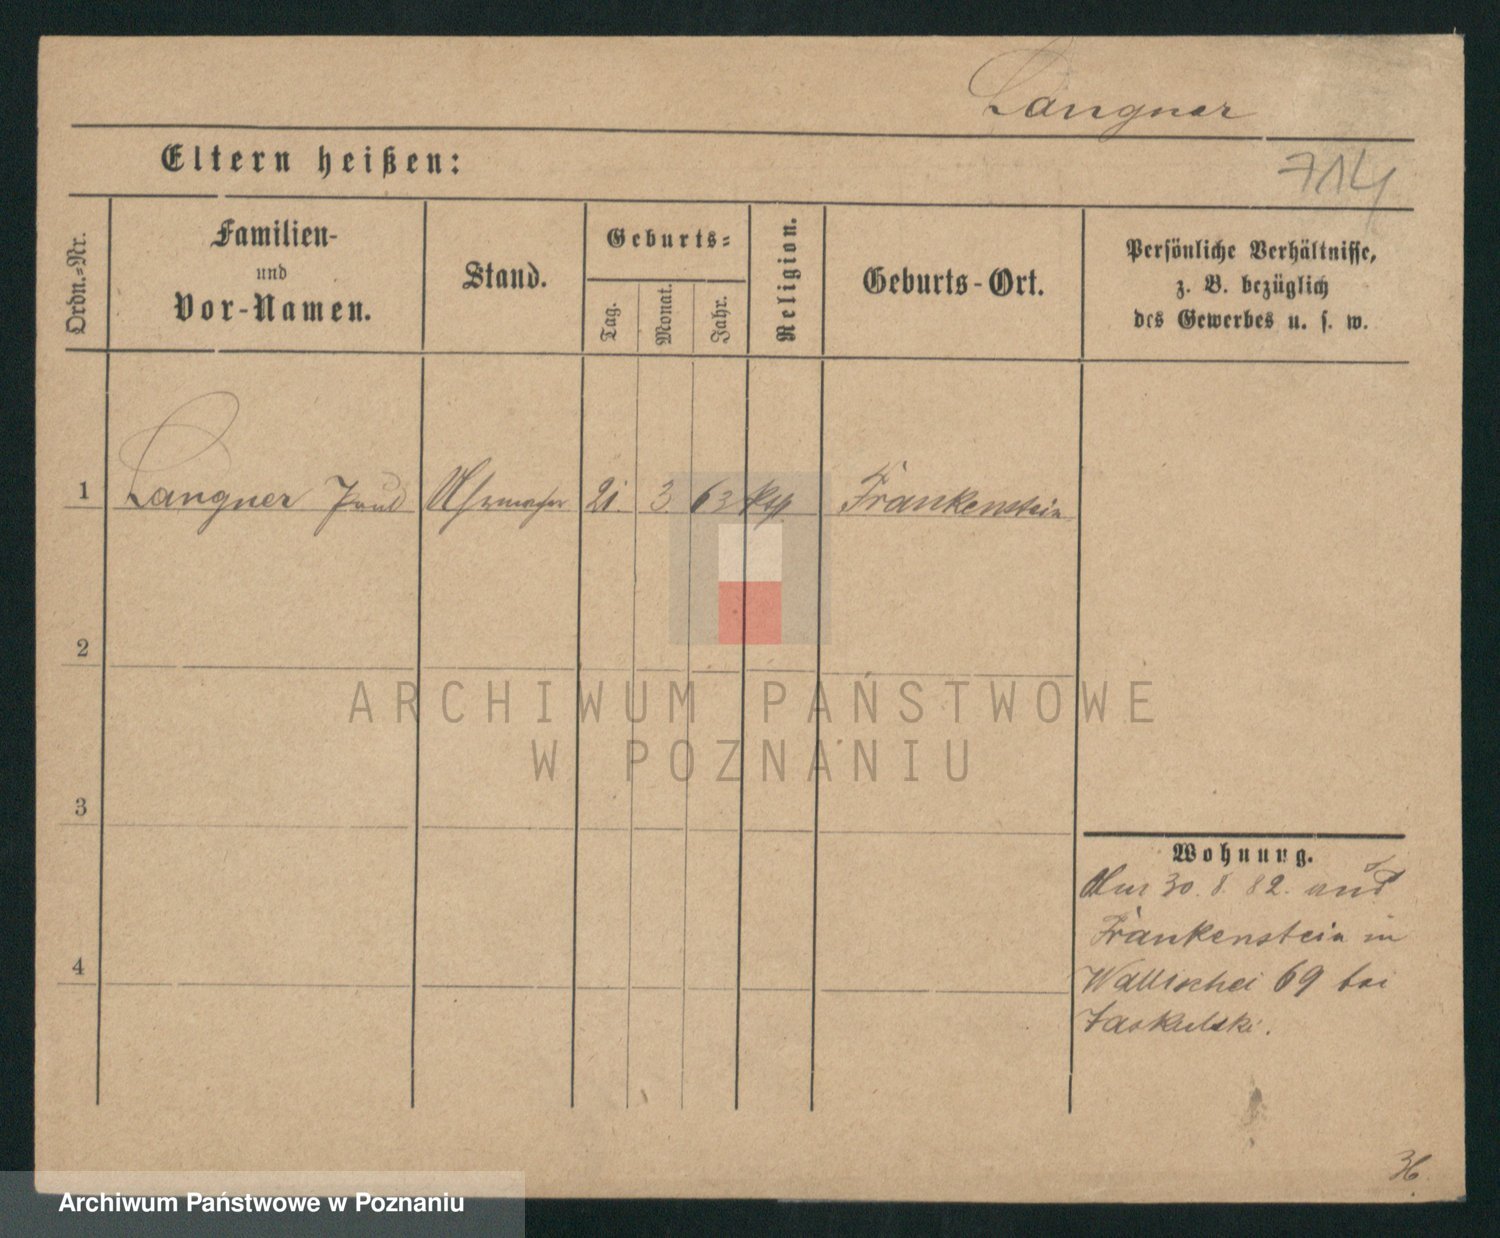 Langner
Eltern heißen:
714
Ordn.=Nr.
Familien-
und
Vor-Namen.
Stand.
Geburts=
Tag.
Monat.
Jahr.
Religion.
Geburts-Ort.
Persönliche Verhältnisse,
z. B. bezüglich
des Gewerbes u. s. w.
1 Langner Paul Uhrmacher 21. 3 63 Frankenstein
2
ARCHIWUM PAŃSTWOWE
W POZNANIU
3
Wohnung.
30. 8. 82. aus
Frankenstein in
4
Wallischei 69 bei
Jaskulski.
36.
Archiwum Państwowe w Poznaniu